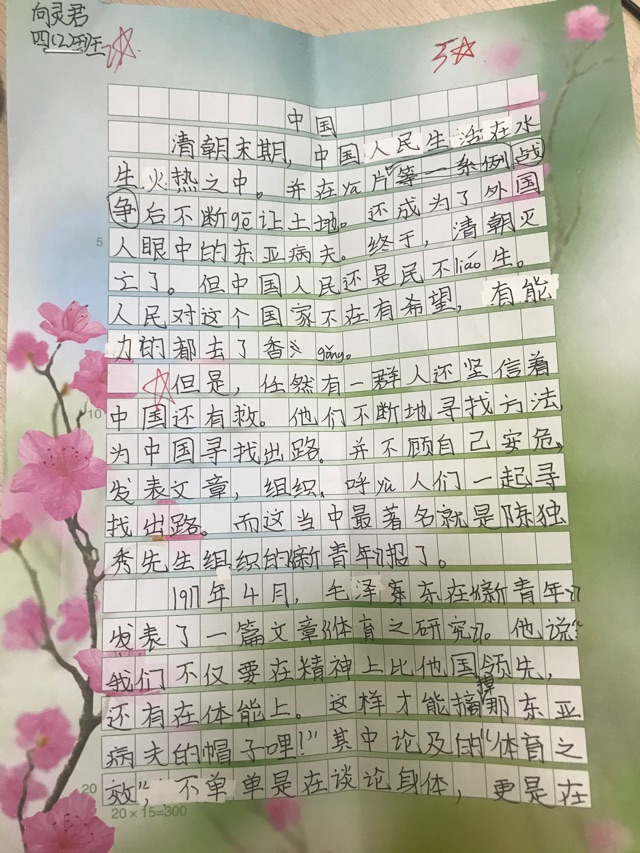 向灵君
四(2)班
中国
清朝末期，中国人民生活在水
生火热之中。并在yā片等一系例战
争后不断gē让土地。还成为了外国
5
人眼中的东亚病夫。终于，清朝灭
亡了。但中国人民还是民不liáo生。
人民对这个国家不在有希望，有能
力的都去了香gǎng。
但是，任然有一群人还坚信着
10
中国还有救。他们不断地寻找方法，
为中国寻找出路。并不顾自己安危，
发表文章，组织。呼yù人们一起寻
找出路。而这当中最著名就是陈独
秀先生组织的《新青年》报了。
1917年4月，毛泽东在《新青年》
发表了一篇文章《体育之研究》。他说“
我们不仅要在精神上比他国领先，
还有在体能上。这样才能摘掉那东亚
病夫的帽子哩！”其中论及的“体育之
20
效”，不单单是在谈论身体，更是在
20×15=300